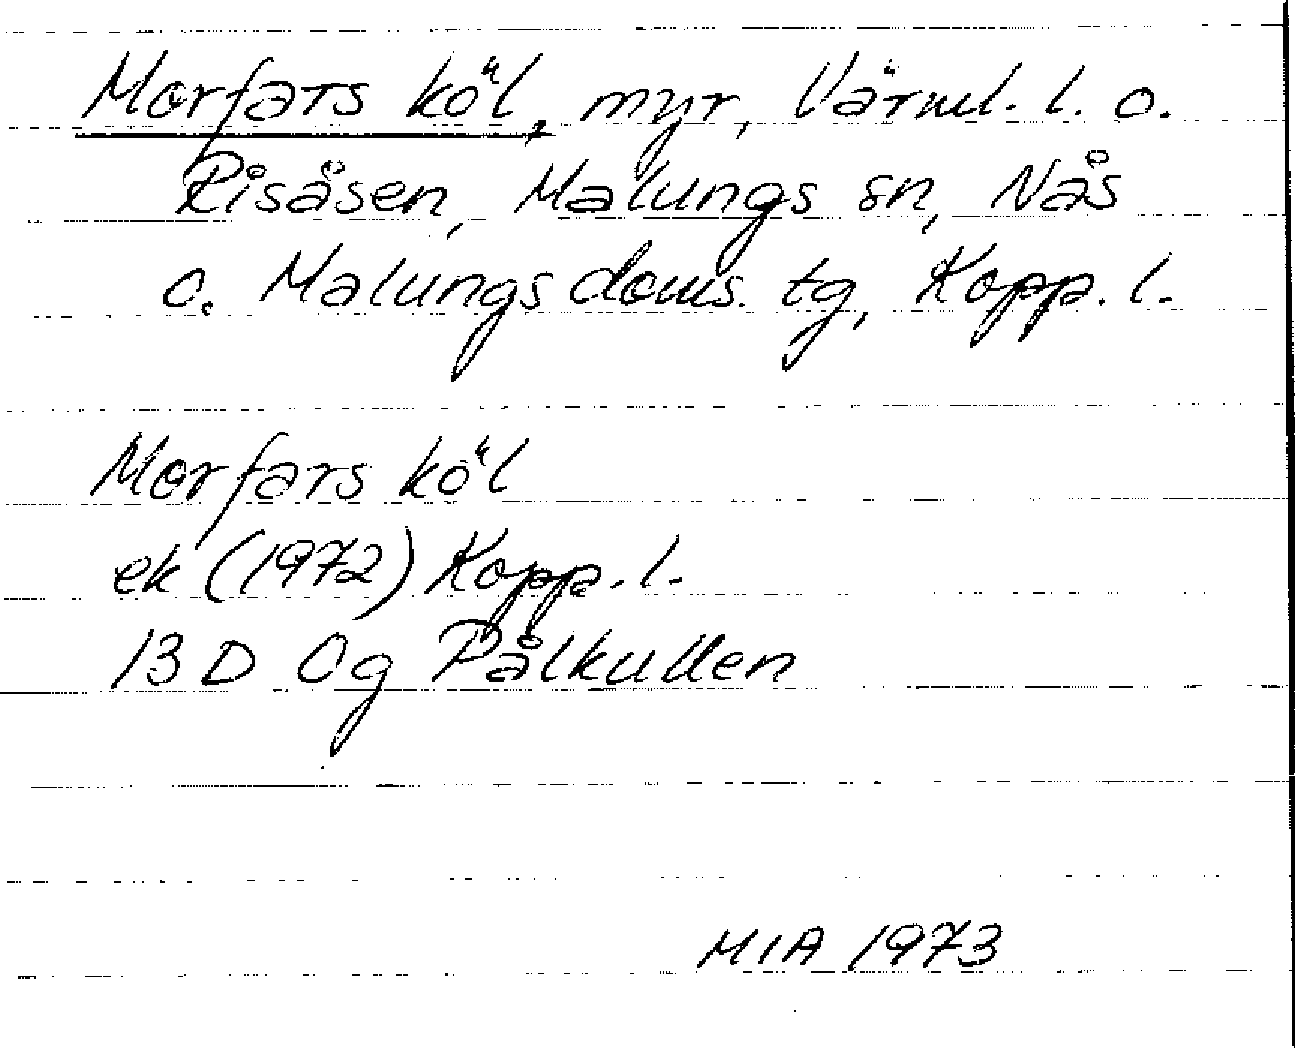 Morfars köl, myr, Värml. l. o.
Risåsen, Malungs sn, Nås
o. Malungs doms. tg, Kopp. l.
Morfars köl
ek (1972) Kopp. l.
13 D Og Pålkullen
MIA 1973